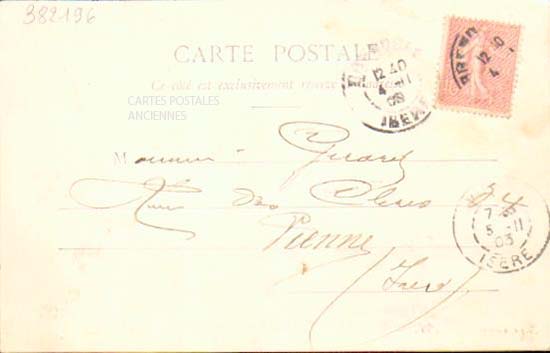 382196
CARTE POSTALE
Ce côté est exclusivement réservé à l'adresse
CARTES POSTALES
ANCIENNES
12 40
4 -11
03
ISERE
12 40
4
M onsieur Girard
Rue des Clercs 34
Vienne
(Isère)
7
5 -11
03
ISERE